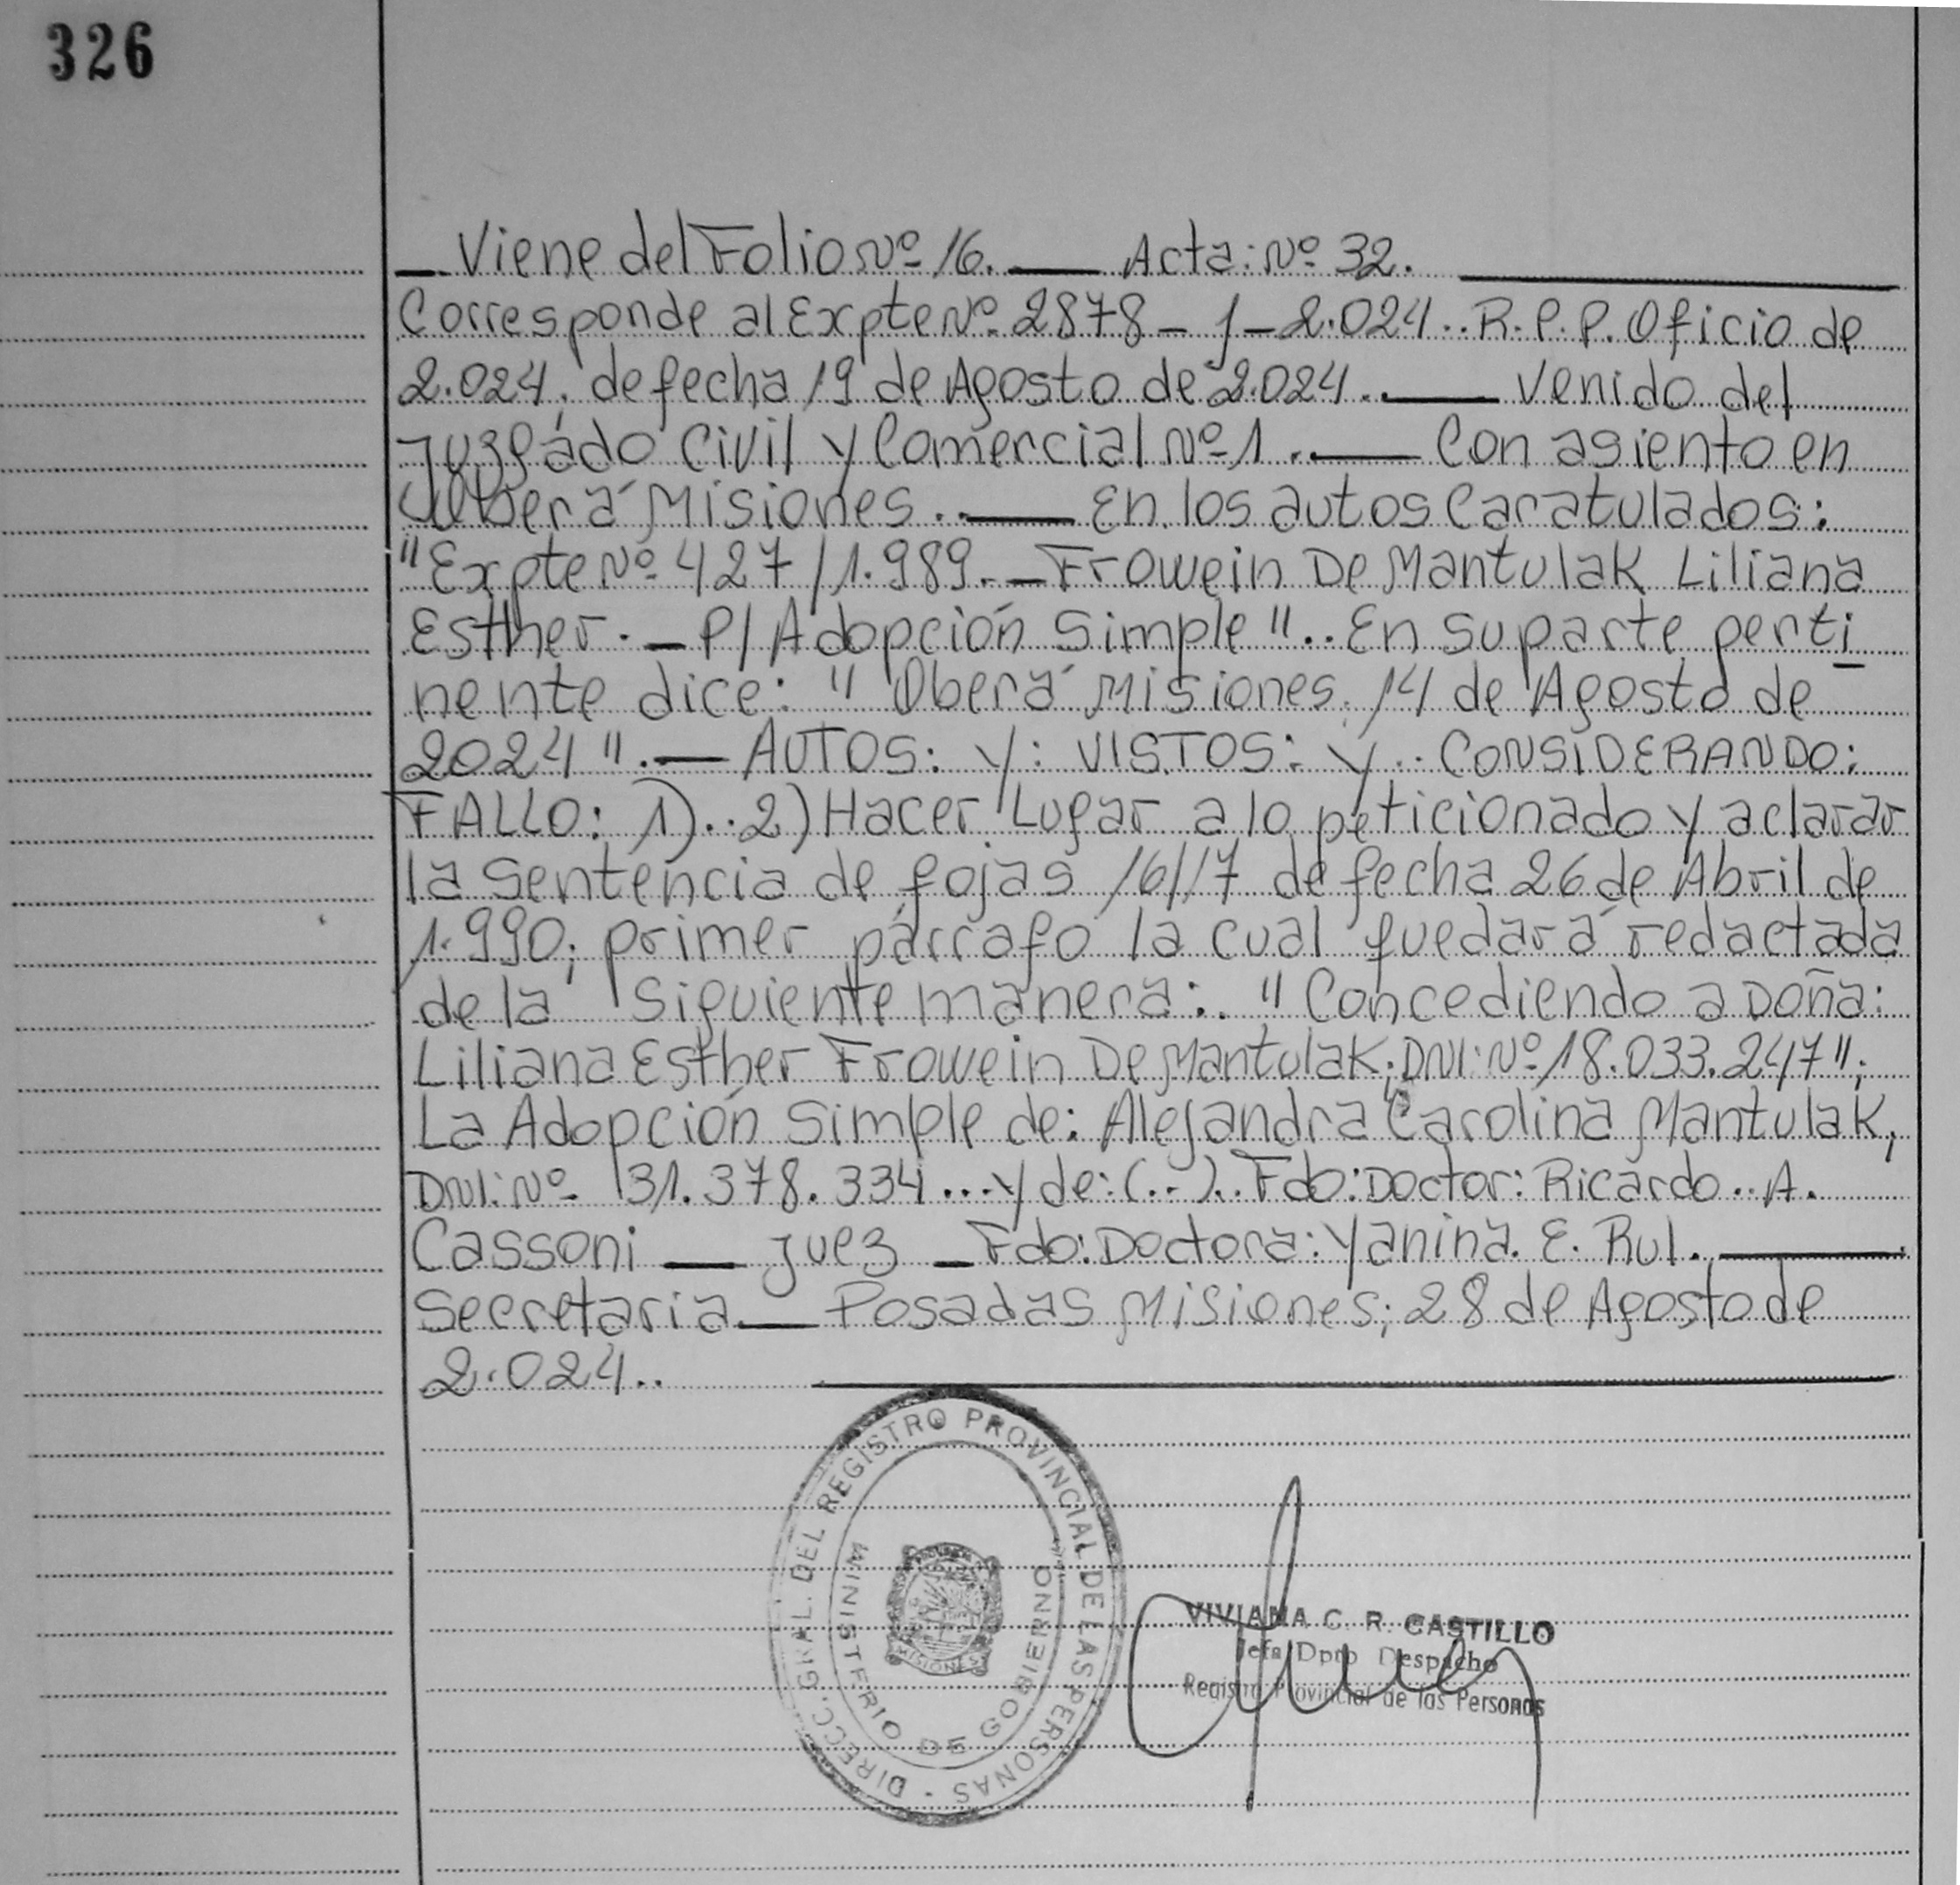 326
Viene del Folio Nº 16. — Acta: Nº 32.
Corresponde al Expte Nº 2878 - J - 2.024.. R.P.P. Oficio de
2.024. de fecha 19 de Agosto de 2.024. — Venido del
Juzgado Civil y Comercial Nº 1. — Con asiento en
Oberá Misiones. — En los autos Caratulados:
"Expte Nº 427/1.989. - Frowein De Mantulak Liliana
Esther. - P/ Adopción Simple".. En su parte perti
nente dice: "Oberá Misiones. 14 de Agosto de
2024". — AUTOS: Y: VISTOS: Y.. CONSIDERANDO:
FALLO: 1)..2) Hacer Lugar a lo peticionado y aclarar
la Sentencia de fojas 16/17 de fecha 26 de Abril de
1.990; primer párrafo la cual quedará redactada
de la siguiente manera:. "Concediendo a Doña:
Liliana Esther Frowein De Mantulak; DNI: Nº 18.033.247";
La Adopción Simple de: Alejandra Carolina Mantulak,
DNI: Nº 31.378.334... y de: (..).. Fdo: Doctor: Ricardo.. A.
Cassoni — Juez - Fdo: Doctora: Yanina. E. Rul. —
Secretaria — Posadas Misiones; 28 de Agosto de
2.024..
DIRECC. GRAL. DEL REGISTRO PROVINCIAL DE LAS PERSONAS -
MINISTERIO DE GOBIERNO
MISIONES
VIVIANA C. R. CASTILLO
Jefa Dpto Despacho
Registro Provincial de las Personas